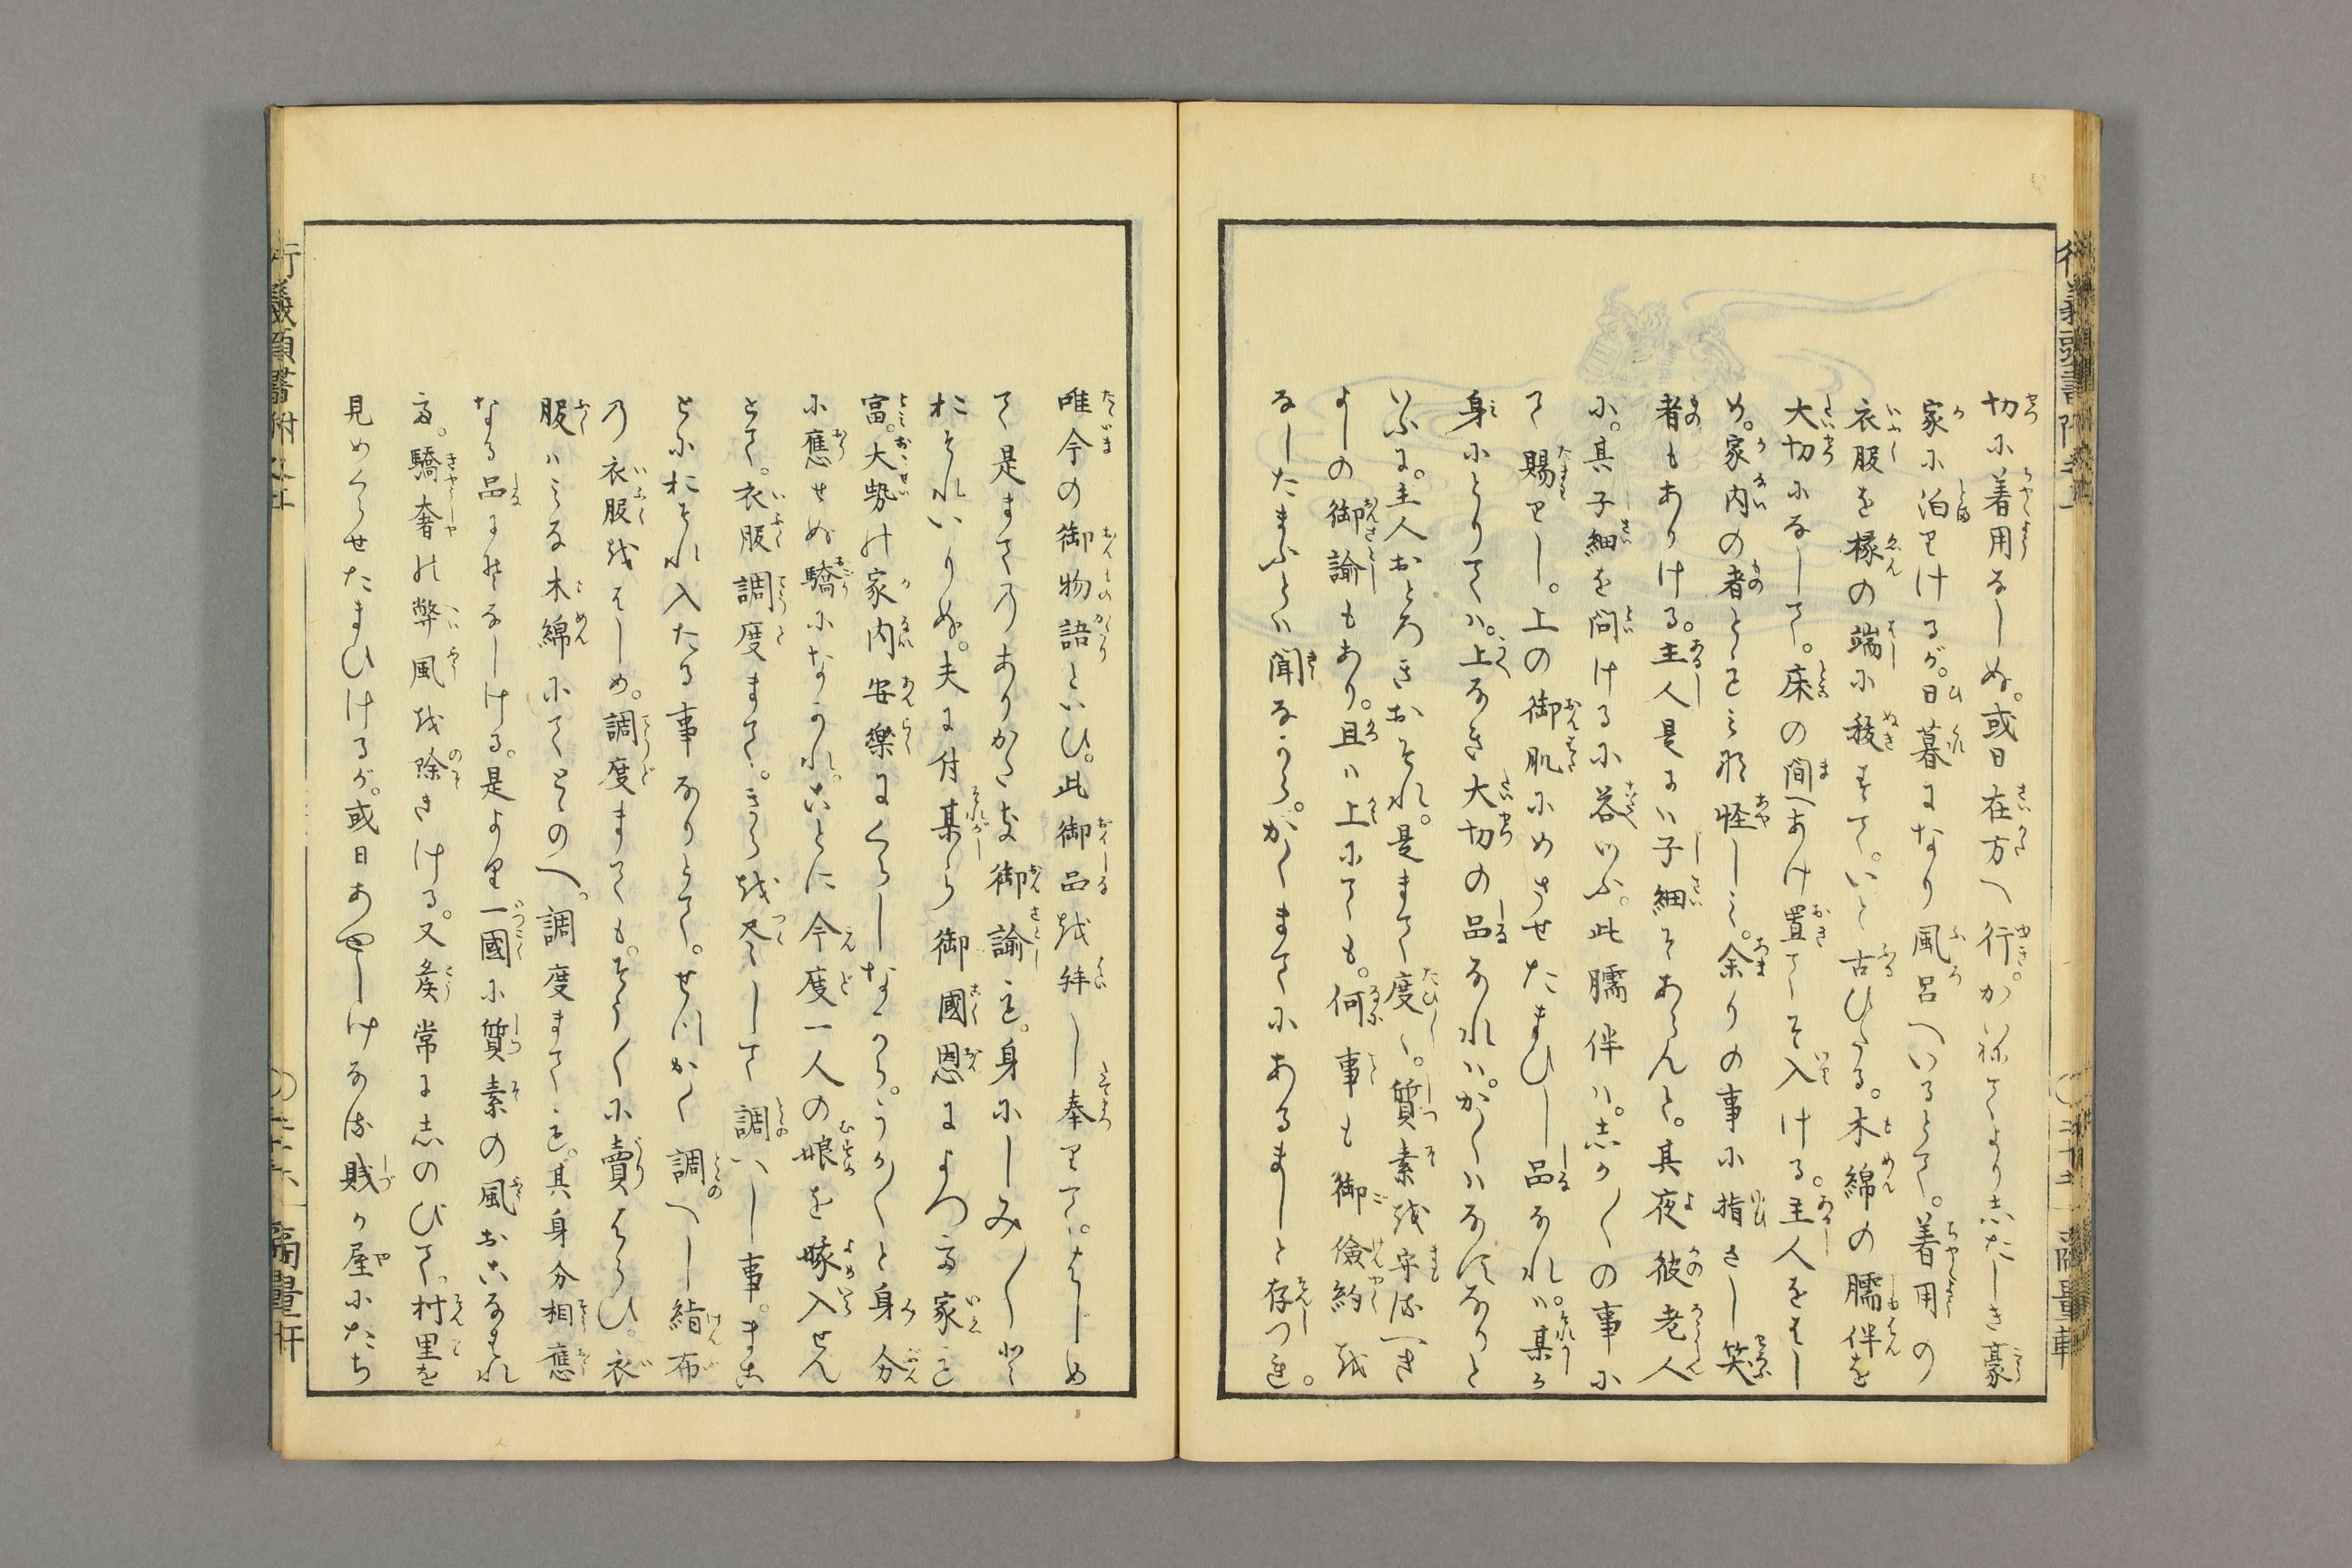 切に着用なしぬ。或日在方へ行。かねてより志たしき豪
家に泊りけるが。日暮になり風呂へいるとて。着用の
衣服を椽の端に移すて。いと古びたる。木綿の臑伴を
大切になして。床の間へあけ置てそ入ける。主人をはし
め。家内の者とも見怪しみ。余りの事に指さし笑
者もありける。主人是には子細そあらんと。其夜彼老人
に。其子細を問けるに答いふ。此臑伴は。志か〱の事に
て賜りし。上の御肌にめさせたまひし品なれは。某か
身にとりては。上なき大切の品なれは。かくはなすなりと
いふに。主人おとろきおそれ。是まて度〱。質素を守るへき
よしの御諭もあり。且は上にても。何事も御儉約を
なしたまふとは聞ながら。かくまてにあるましと存つる。
唯今の御物語といひ。此御品を拜し奉りて。はしめ
て是まてのありかたき御諭も。身にしみ〱と
おそれいりぬ。夫に付某ら御國恩によつて家も
富。大勢の家内安樂にくらしながら。うか〱と身分
に應せぬ驕になかれ。ことに今度一人の娘を嫁入せん
とて。衣服調度まて。きらを尽くして調いし事。まこ
とにおそれ入たる事なりとて。せつかく調へし絹布
の衣服をはしめ。調度まても。そう〱に賣はらひ。衣
服はみな木綿にてとゝのへ。調度まても。其身分相應
なる品にそなしける。是より一國に質素の風おこなはれ
て。驕奢の弊風を除きける。又侯常に志のびて。村里を
見めくらせたまひけるが。或日あやしけなる賤か屋にたち